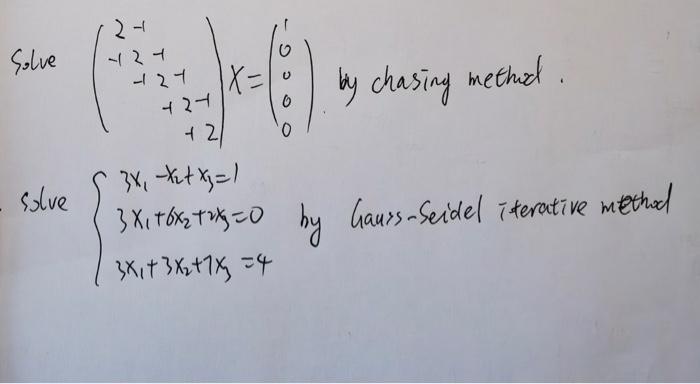 Solve ( 2 -1
-1 2 -1
-1 2 -1
-1 2 -1
-1 2 ) X = ( 1 0 0 0 0 ) by chasing method.
Solve { 3x₁ -x₂+x₃=1
3x₁+6x₂+2x₃=0 by Gauss-Seidel iterative method
3x₁+3x₂+7x₃=4